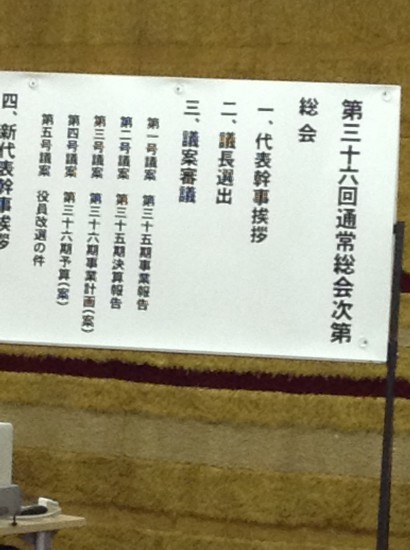 第三十六回通常総会次第
総会
一、代表幹事挨拶
二、議長選出
三、議案審議
第一号議案　第三十五期事業報告
第二号議案　第三十五期決算報告
第三号議案　第三十六期事業計画(案)
第四号議案　第三十六期予算(案)
第五号議案　役員改選の件
四、新代表幹事挨拶